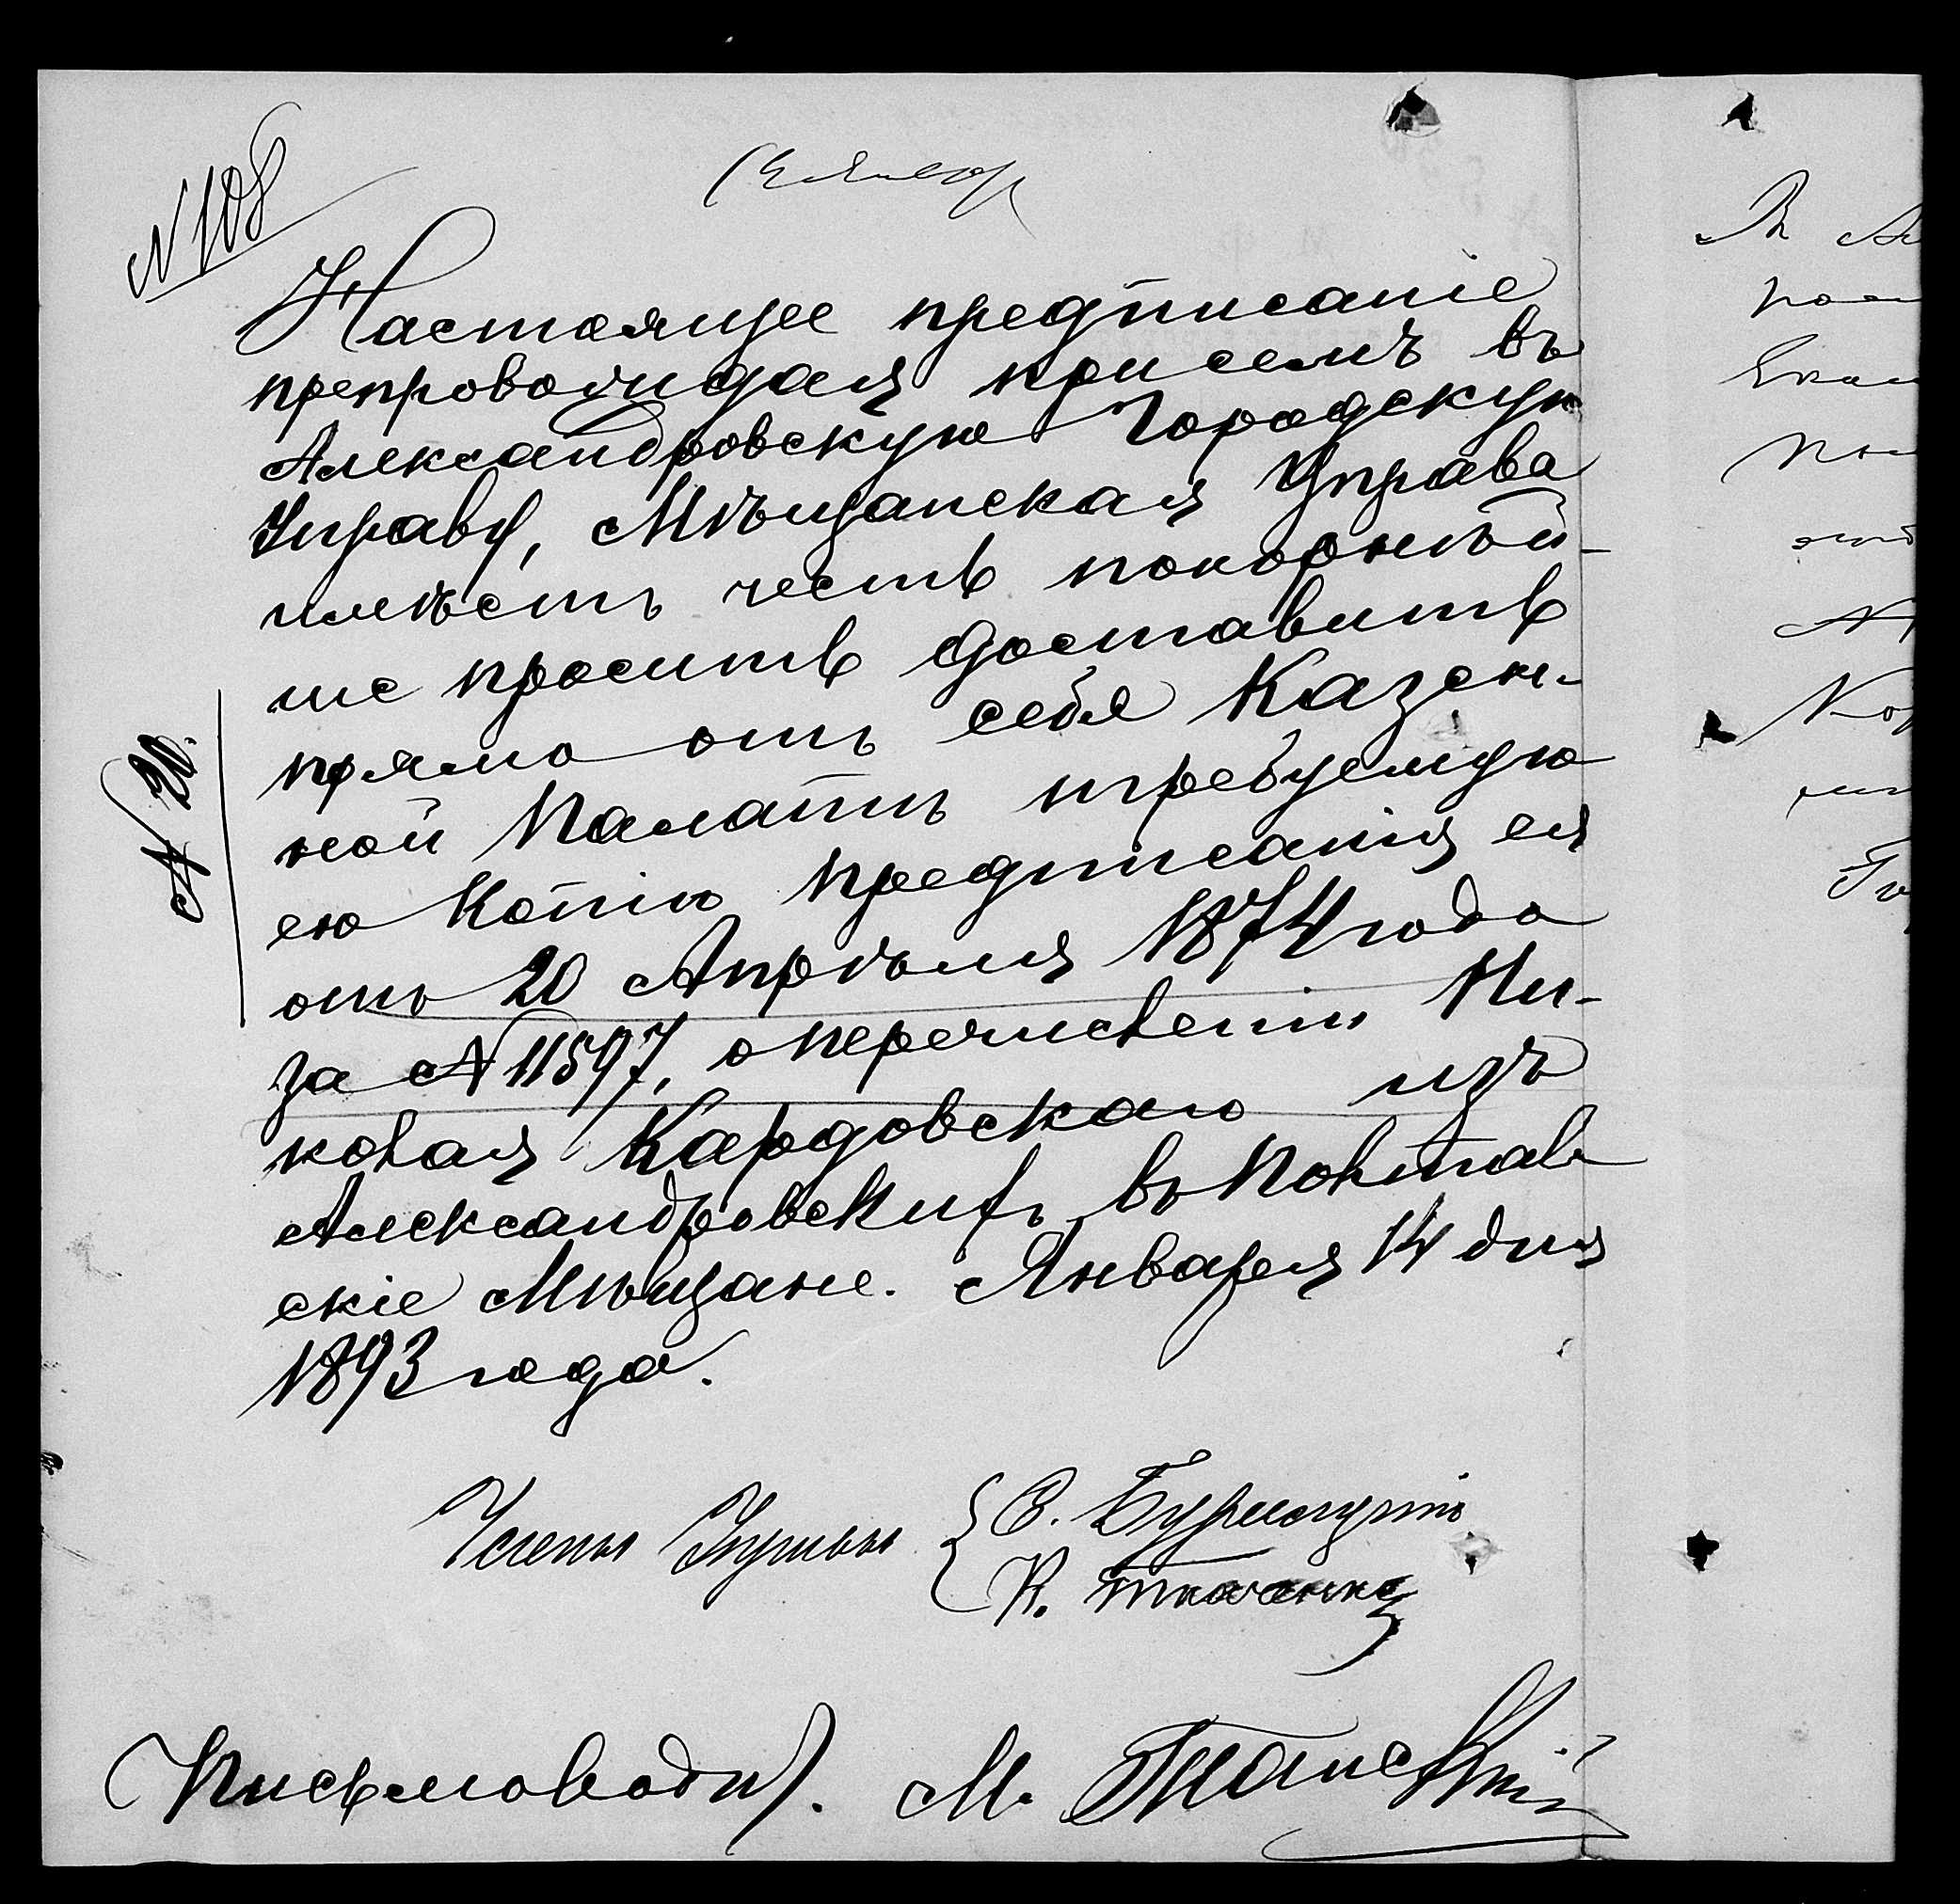 № 108
Настоящее предписаніе
препровождая при семъ въ
Александровскую Городскую
Управу, Мѣщанская Управа
имѣетъ честь покорнѣй-
ше просить доставить
прямо отъ себя Казен-
ной Палатѣ требуемую
ею Копію предписанія ея
отъ 20 Апрѣля 1874 года
за № 11597, о перечисленіи Ни-
колая Кардовскаго изъ
Александровскихъ въ Полтав
скіе Мѣщане. Января 14 дня
1893 года.
Члены Управы
К. Ткаченко
Письмоводи. М.